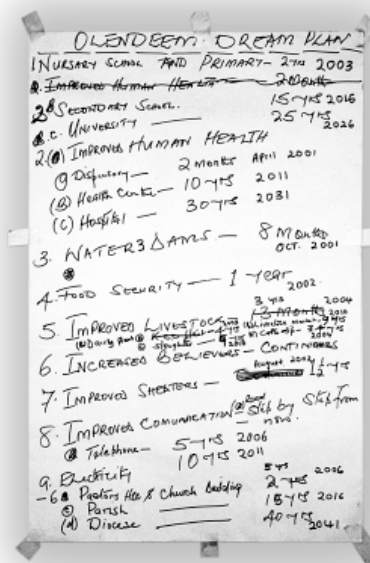 OLENDEEM DREAM PLAN
1 NURSARY SCHOOL AND PRIMARY - 2 yrs 2003
2. IMPROVED HUMAN HEALTH 2 Months
B SECONDARY SCHOOL. 15 yrs 2016
C. UNIVERSITY 25 yrs 2026
2. (a) IMPROVED HUMAN HEALTH
(a) Dispensary - 2 months April 2001
(B) Health Centre - 10 yrs 2011
(C) Hospital - 30 yrs 2031
3. WATER 3 DAMS - 8 Months
OCT. 2001
4. FOOD SECURITY - 1 year
2002.
3 yrs 2004
5. IMPROVED LIVESTOCK
6. INCREASED BELIEVERS - CONTINUOUS
August 2002
7. IMPROVED SHELTERS - 1½ yrs
8. IMPROVED COMUNICATION (a) Road Step by Step from
now.
Telephone - 5 yrs 2006
10 yrs 2011
9. Electricity
5 yrs 2006
- 6 Pastors Hse & Church Building 2 yrs
(c) Parish 15 yrs 2016
(d) Diocese 40 yrs 2041